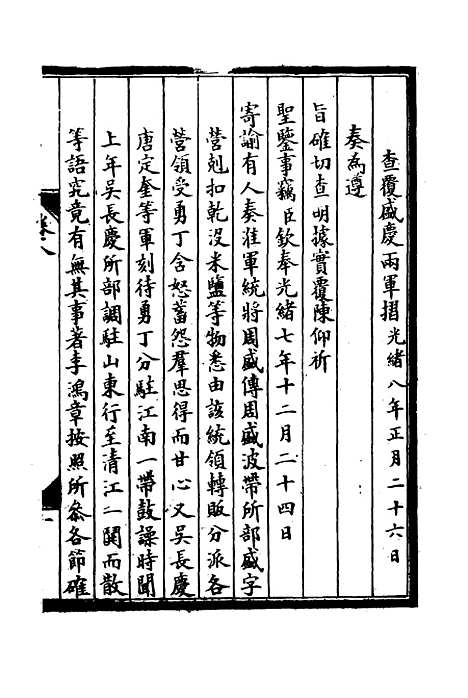 查覆盛慶兩軍摺光緒八年正月二十六日
奏為遵
旨確切查明據實覆陳仰祈
聖鑒事竊臣欽奉光緒七年十二月二十四日
寄諭有人奏淮軍統將周盛傳周盛波帶所部盛字
營剋扣乾沒米鹽等物悉由該統領轉販分派各
營領受勇丁含怒蓄怨羣思得而甘心又吳長慶
唐定奎等軍刻待勇丁分駐江南一帶鼓譟時聞
上年吳長慶所部調駐山東行至清江一鬨而散
等語究竟有無其事著李鴻章按照所叅各節確
卷八